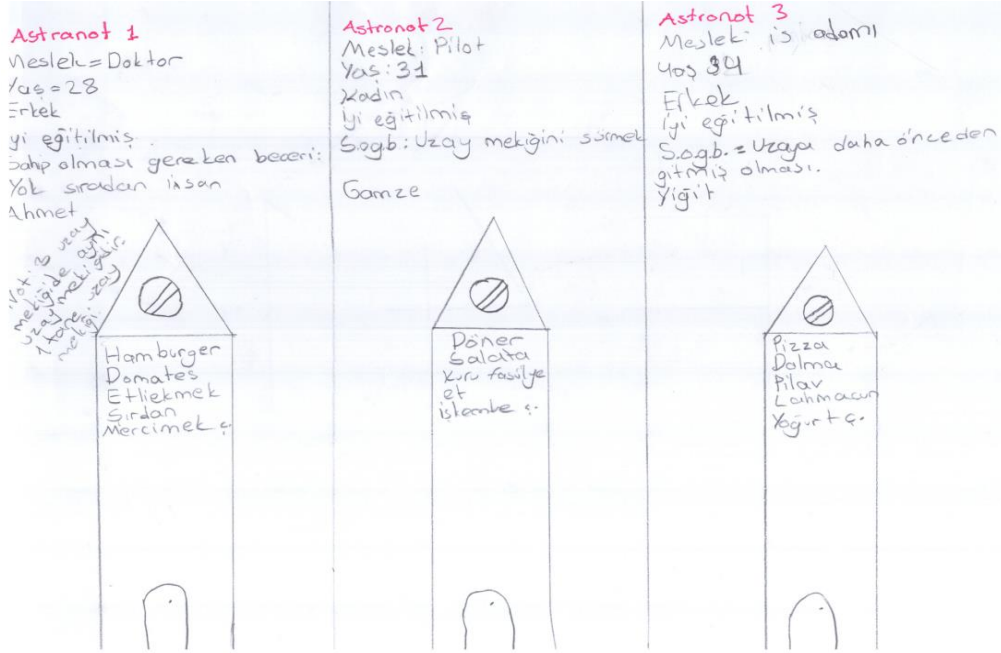 Astranot 1
Meslek = Doktor
Yaş = 28
Erkek
iyi eğitilmiş
Sahip olması gereken beceri:
Yok sıradan insan
Ahmet
Not: 3 uzay
mekiğide aynı
uzay mekiğidir.
1 tane uzay
mekiği
Hamburger
Domates
Etliekmek
Şırdan
Mercimek ç.
Astronot 2
Meslek: Pilot
Yaş: 31
Kadın
iyi eğitilmiş
S.o.g.b.: Uzay mekiğini sürmek
Gamze
Döner
Salata
Kuru fasülye
et
işkembe ç.
Astronot 3
Meslek: iş adamı
Yaş 34
Erkek
iyi eğitilmiş
S.o.g.b. = Uzaya daha önceden
gitmiş olması.
Yiğit
Pizza
Dolma
Pilav
Lahmacun
Yoğurt ç.